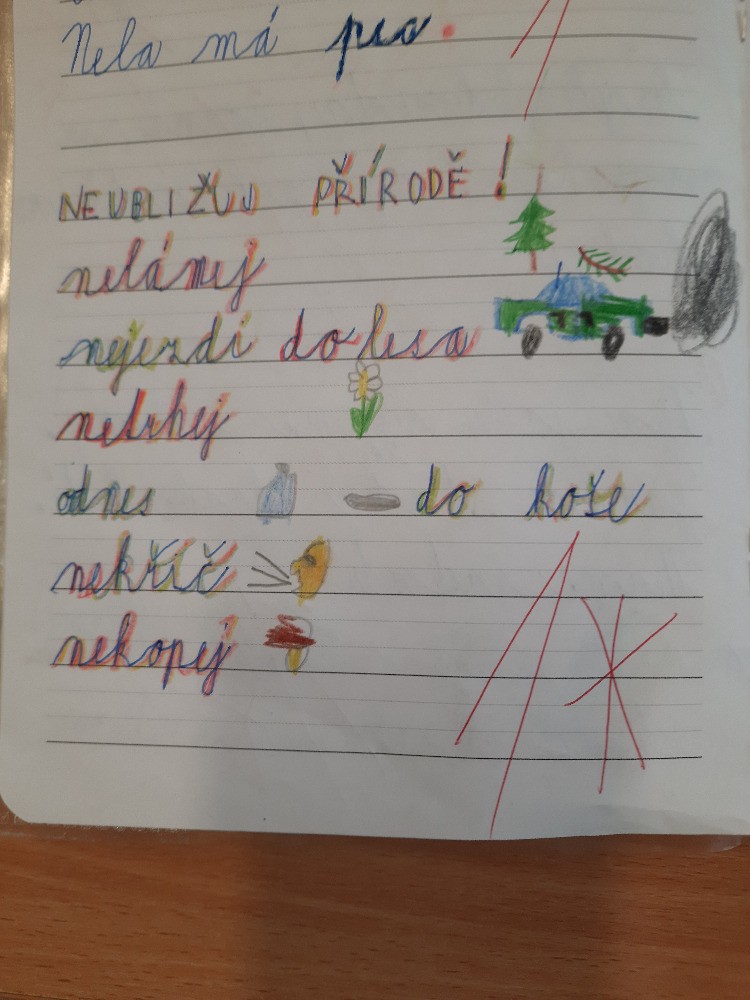 Nela má psa.
NEUBLIŽUJ PŘÍRODĚ!
nelámej
nejezdi do lesa
netrhej
odnes do koše
nekřič
nekopej